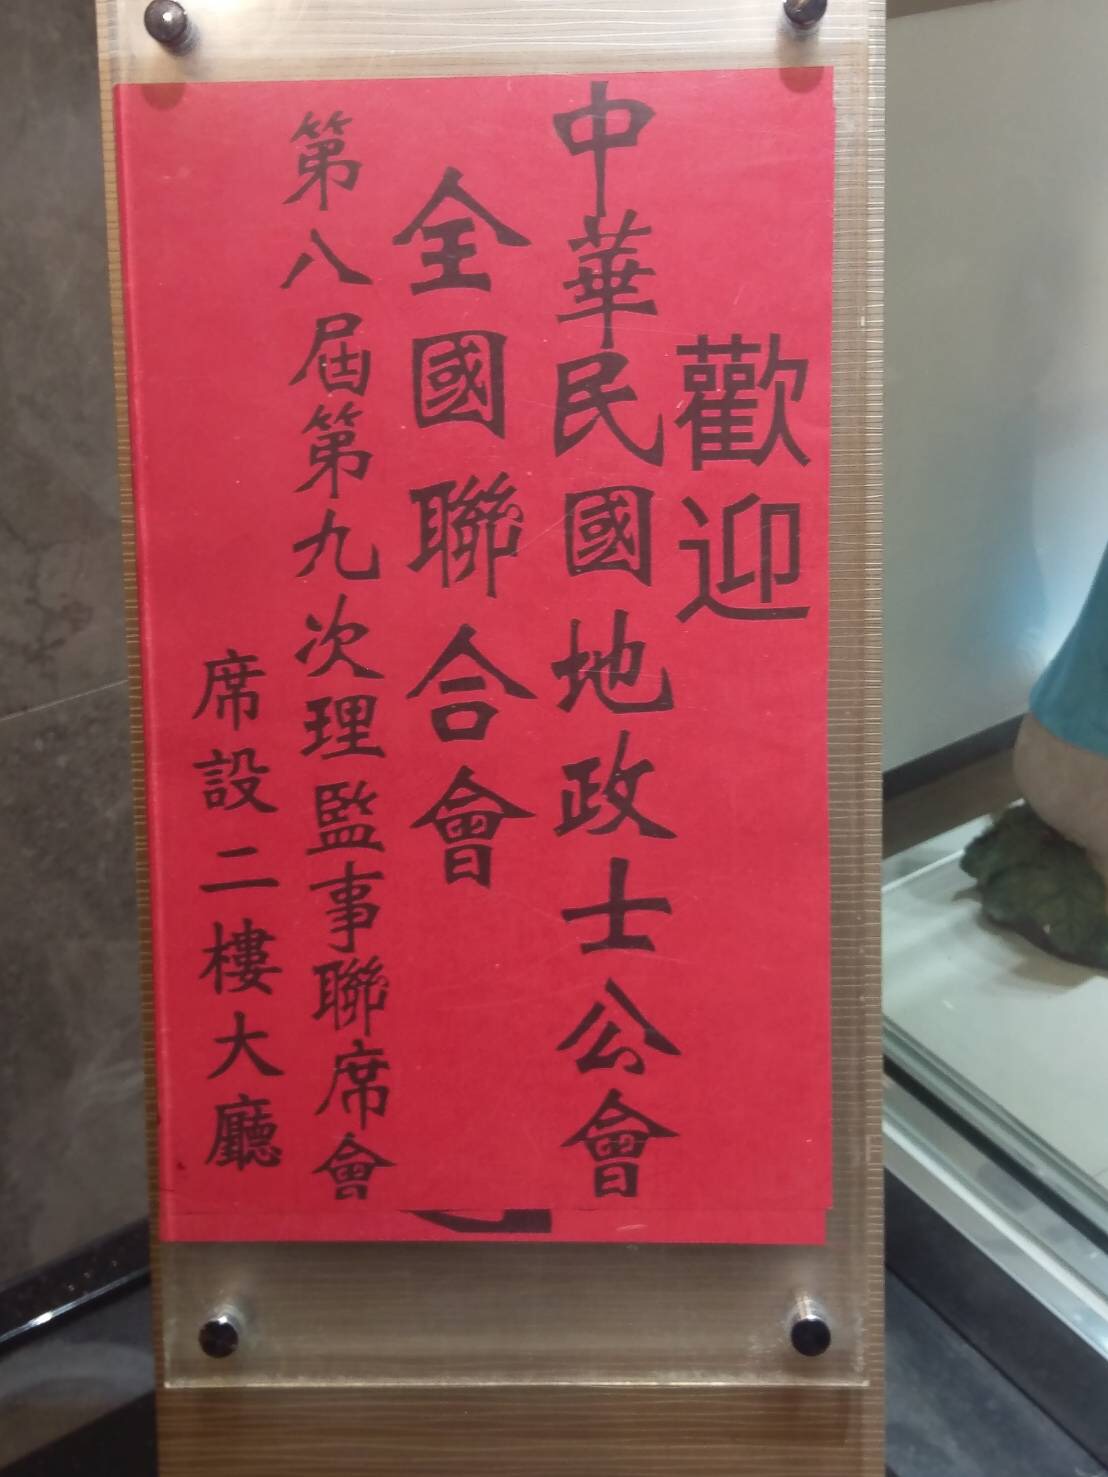 歡迎
中華民國地政士公會
全國聯合會
第八屆第九次理監事聯席會
席設二樓大廳